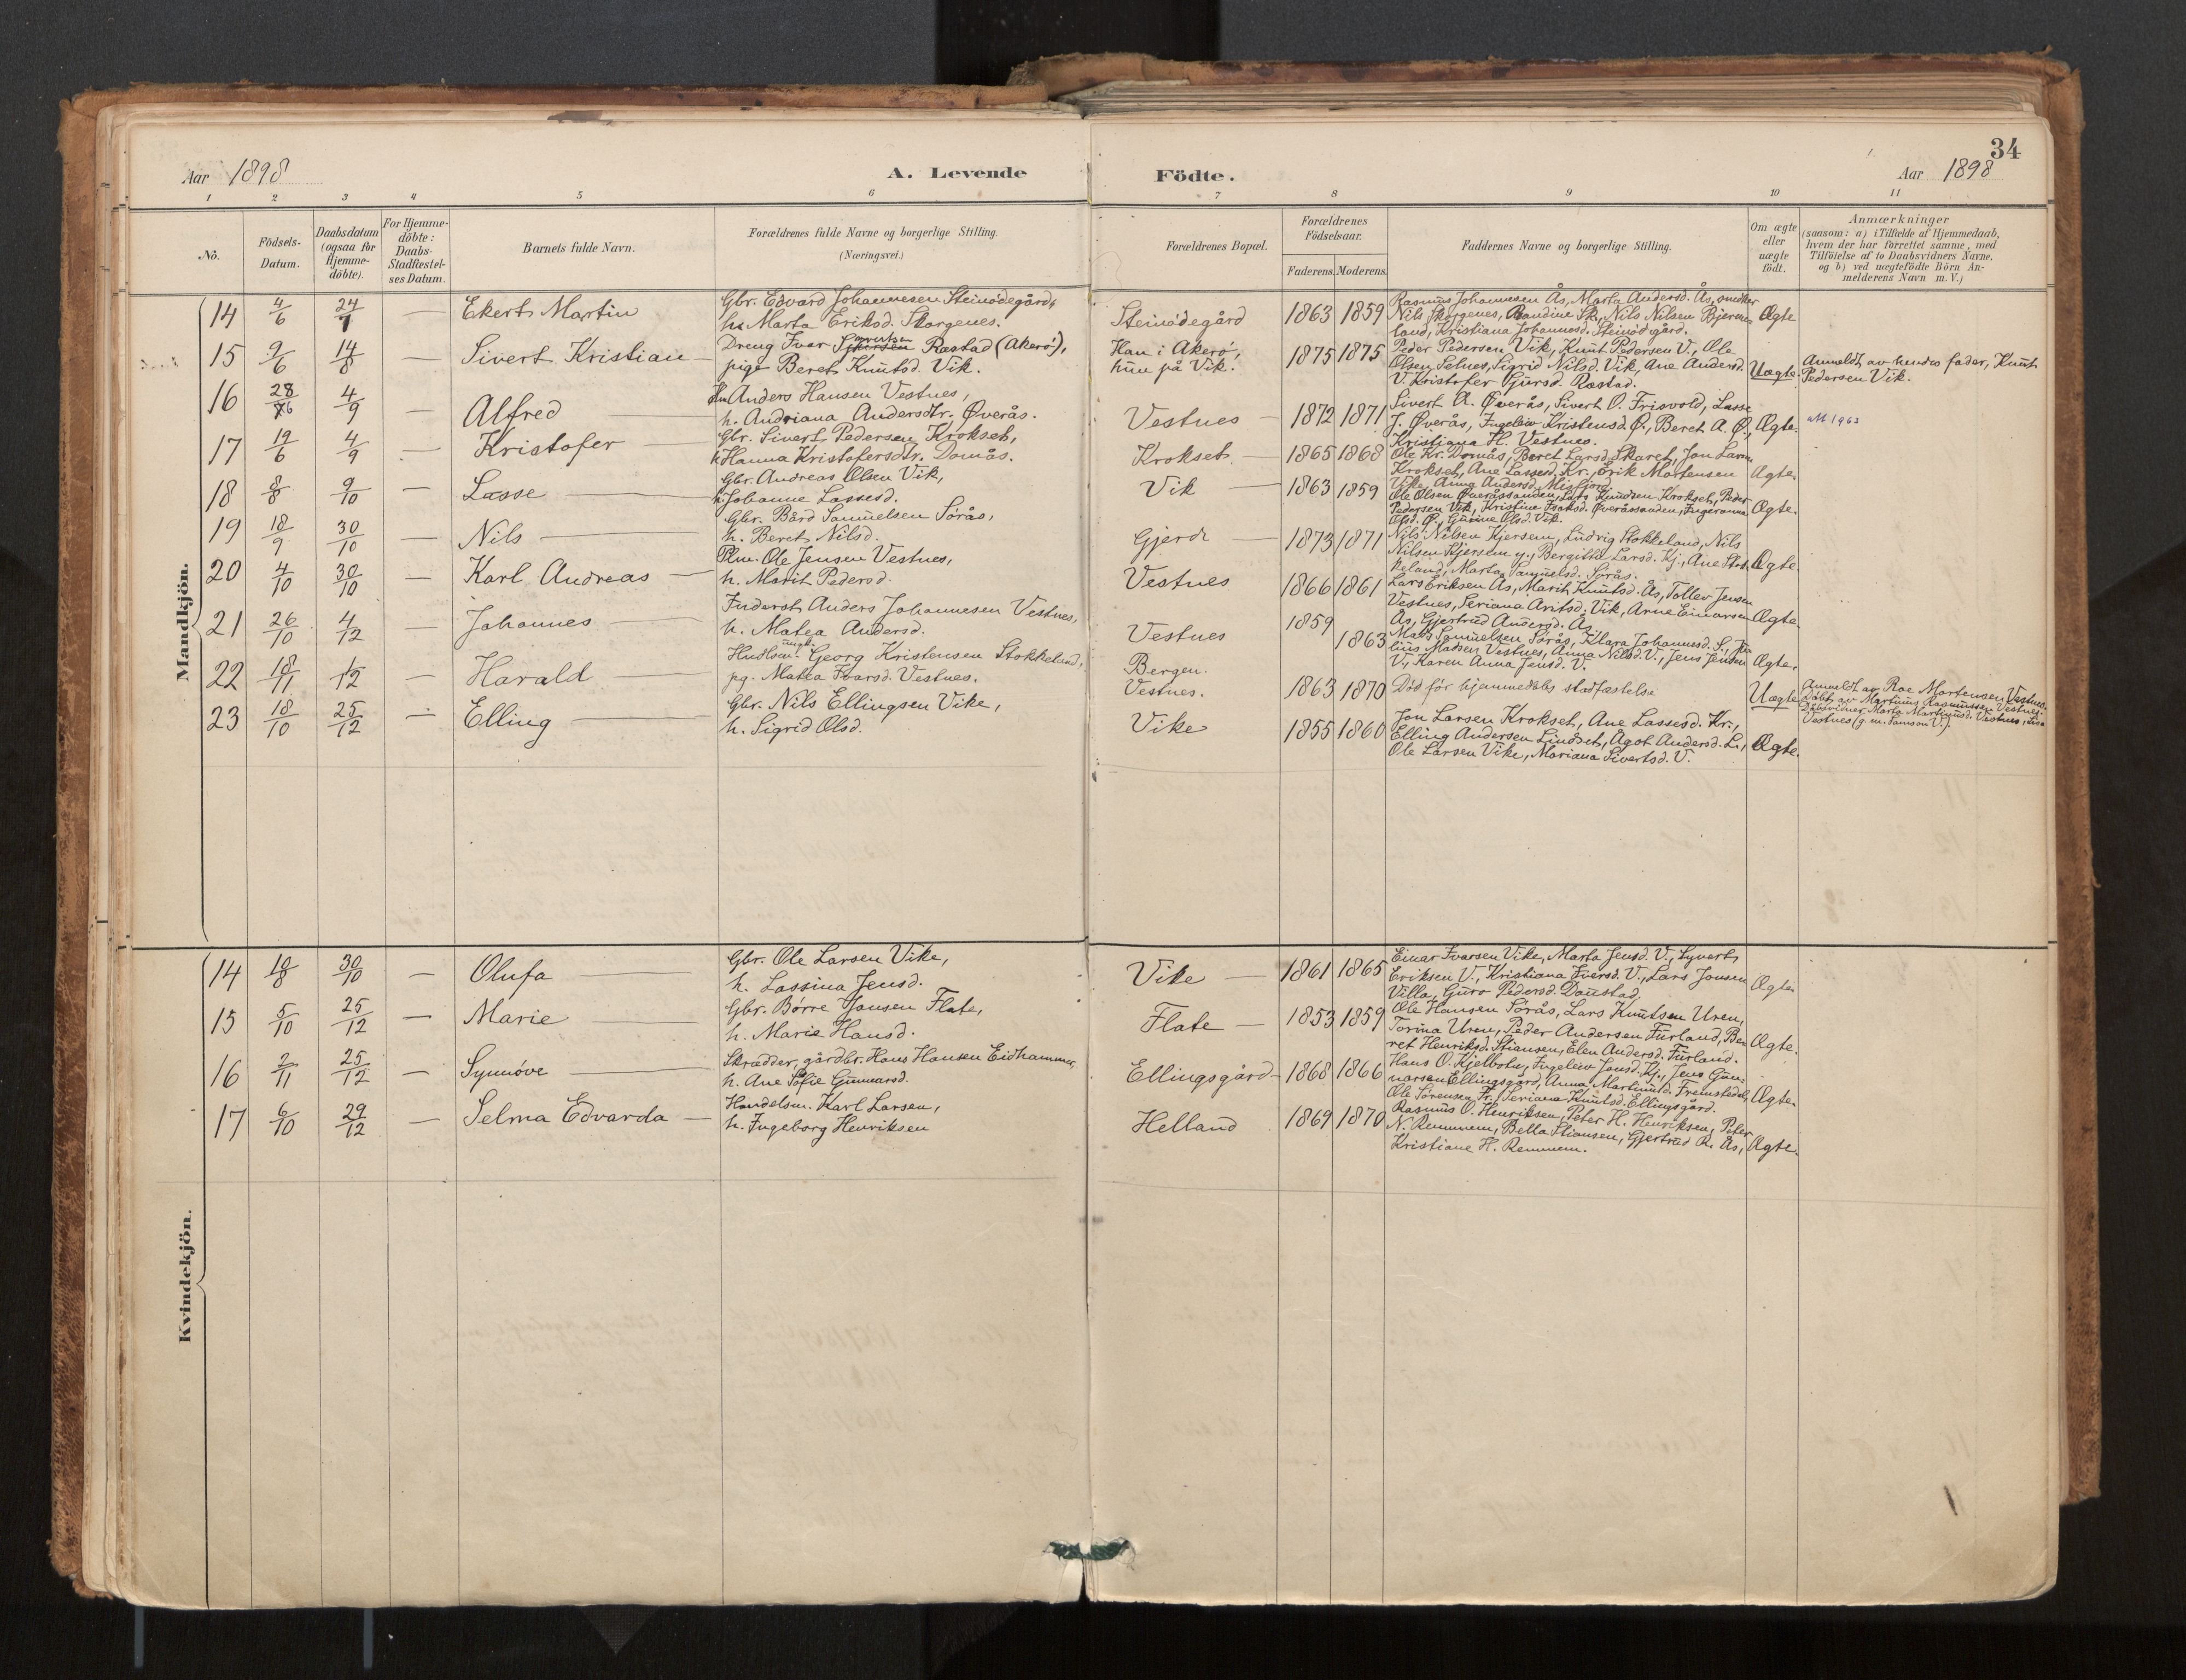 34
Aar 1898
A. Levende
Födte.
Aar 1898
1 2 3 4 5 6 7 8 9 10 11
No.
Födsels-
Datum.
Daabsdatum
(ogsaa for
Hjemme-
döbte).
For Hjemme-
döbte:
Daabs-
Stadfæstel-
ses Datum.
Barnets fulde Navn.
Forældrenes fulde Navne og borgerlige Stilling.
(Næringsvei.)
Forældrenes Bopæl.
Forældrenes
Födselsaar.
Faderens. Moderens.
Faddernes Navne og borgerlige Stilling.
Om ægte
eller
uægte
födt.
Anmærkninger
(saasom: a) i Tilfælde af Hjemmedaab,
hvem der har forrettet samme, med
Tilföielse af to Daabsvidners Navne.
og b) ved uægtefödte Börn An-
melderens Navn m. V.)
Mandkjön.
14 4/6 24/7 — Ekert Martin
Gbr. Edvard Johannesen Steinødegård,
h. Marta Eriksd. Skorgenes.
Steinødegård 1863 1859
Rasmus Johannesen Ås, Marta Andersd. Ås, snedker
Nils Skorgenes, Randine Sk., Nils Nilsen Bjerme-
land, Kristiana Johannesd. Steinødgård.
Ægte
15 9/6 14/8 — Sivert Kristian —
Dreng Ivar Rastad (Akerø),
pige Beret Knutsd. Vik.
Han i Akerø,
hun på Vik.
1875 1875
Peder Pedersen Vik, Knut Pedersen V., Ole
Olsen Selnes, Sigrid Nilsd. Vik, Ane Andersd.
V. Kristofer Gjørsd. Rastad.
Uægte.
Anmeldt av hendes fader, Knut
Pedersen Vik.
16 28/6 4/9 — Alfred
Anders Hansen Vestnes,
h. Andriana Andersdtr. Øverås.
Vestnes 1872 1871
Sivert A. Øverås, Sivert O. Frisvold, Lasse
J. Øverås, Ingeleiv Kristensd. Ø., Beret A. Ø.,
Kristiana H. Vestnes.
Ægte.
17 19/6 4/9 — Kristofer
Gbr. Sivert Pedersen Krokset,
h. Hanna Kristofersdtr. Domås.
Krokset 1865 1868
Ole Kr. Domås, Beret Larsd. Skaret, Jon Larsen
Krokset, Ane Lassesd. Kr., Erik Mortensen
Vike, Anna Andersd. Misfjord.
Ægte.
18 8/8 9/10 — Lasse
Gbr. Andreas Olsen Vik,
h. Johanne Lassesd.
Vik 1863 1859
Ole Olsen Øveråssanden, Lars Knudsen Krokset, Peder
Pedersen Vik, Kristine Isaksd. Øveråssanden, Ingeranna
Olsd. Ø., Gurine Olsd. Vik.
Ægte.
19 18/9 30/10 — Nils
Gbr. Bård Samuelsen Sørås,
h. Beret Nilsd.
Gjerdr 1873 1871
Nils Nilsen Kjersem, Ludvig Stokkeland, Nils
Nilsen Kjersem y., Bergitta Larsd. Kj., Ane Stok-
keland, Marta Samuelsd. Sørås.
Ægte.
20 4/10 30/10 — Karl Andreas —
Plm. Ole Jensen Vestnes,
h. Marit Pedersd.
Vestnes 1866 1861
Lars Eriksen Ås, Marit Knutsd. Ås, Tollev Jensen
Vestnes, Seriana Aritsd. Vik, Arne Einarsen
Ås, Gjertrud Andersd. Ås
Ægte.
21 26/10 4/12 — Johannes
Inderst Anders Johannesen Vestnes,
h. Matea Andersd.
Vestnes 1859 1863
Mats Samuelsen Sørås, Klara Johannesd. S., Ju-
lius Madsen Vestnes, Anna Nilsd. V., Jens Jensen
V., Karen Anna Jensd. V.
Ægte.
22 18/11 — Harald
ungk.
Hndlsm. Georg Kristensen Stokkeland,
pg. Matea Ivarsd. Vestnes.
Bergen.
Vestnes.
1863 1870
Død før hjemmedåbs stadfæstelse
Uægte
Anmeldt av Roe Mortensen Vestnes.
Døbt av Martinus Rasmussen Vestnes.
Dåbsvidner Marta Martinusd. Vestnes, Lisa
Vestnes (g. m. Samson V.).
23 18/10 25/12 — Elling
Gbr. Nils Ellingsen Vike,
h. Sigrid Olsd.
Vike 1855 1860
Jon Larsen Krokset, Ane Lassesd. Kr.,
Elling Andersen Lindset, Ågot Andersd. L.,
Ole Larsen Vike, Mariana Sivertsd. V.
Ægte.
Kvindekjön.
14 10/8 30/10 — Olufa
Gbr. Ole Larsen Vike,
h. Lassina Jensd.
Vike 1861 1865
Einar Ivarsen Vike, Marta Jensd. V., Syvert
Eriksen V., Kristiana Iversd. V., Lars Jonsen
Villa, Guro Pedersd. Daustad.
Ægte
15 5/10 25/12 — Marie
Gbr. Børre Jansen Flate,
h. Marie Hansd.
Flate 1853 1859
Ole Hansen Sørås, Lars Knutsen Uren,
Torina Uren, Peder Andersen Furland, Be-
ret Henriksd. Stiansen, Elen Andersd. Furland.
Ægte.
16 2/11 25/12 — Synnøve
Skrædder, gårdbr. Hans Hansen Eidhammer,
h. Ane Sofie Gunnarsd.
Ellingsgård 1868 1866
Hans O. Kjelbotn, Ingeleiv Jensd. Kj., Jens Gun-
narsen Ellingsgård, Anna Martinusd. Fremstedal,
Ole Sørensen Fr., Seriana Knutsd. Ellingsgård.
Ægte.
17 6/10 29/12 — Selma Edvarda —
Handelsm. Karl Larsen,
h. Ingeborg Henriksen
Helland 1869 1870
Rasmus O. Henriksen, Peter H. Henriksen, Peter
N. Remmem, Bella Stiansen, Gjertrud R. Ås,
Kristiane H. Remmem.
Ægte.